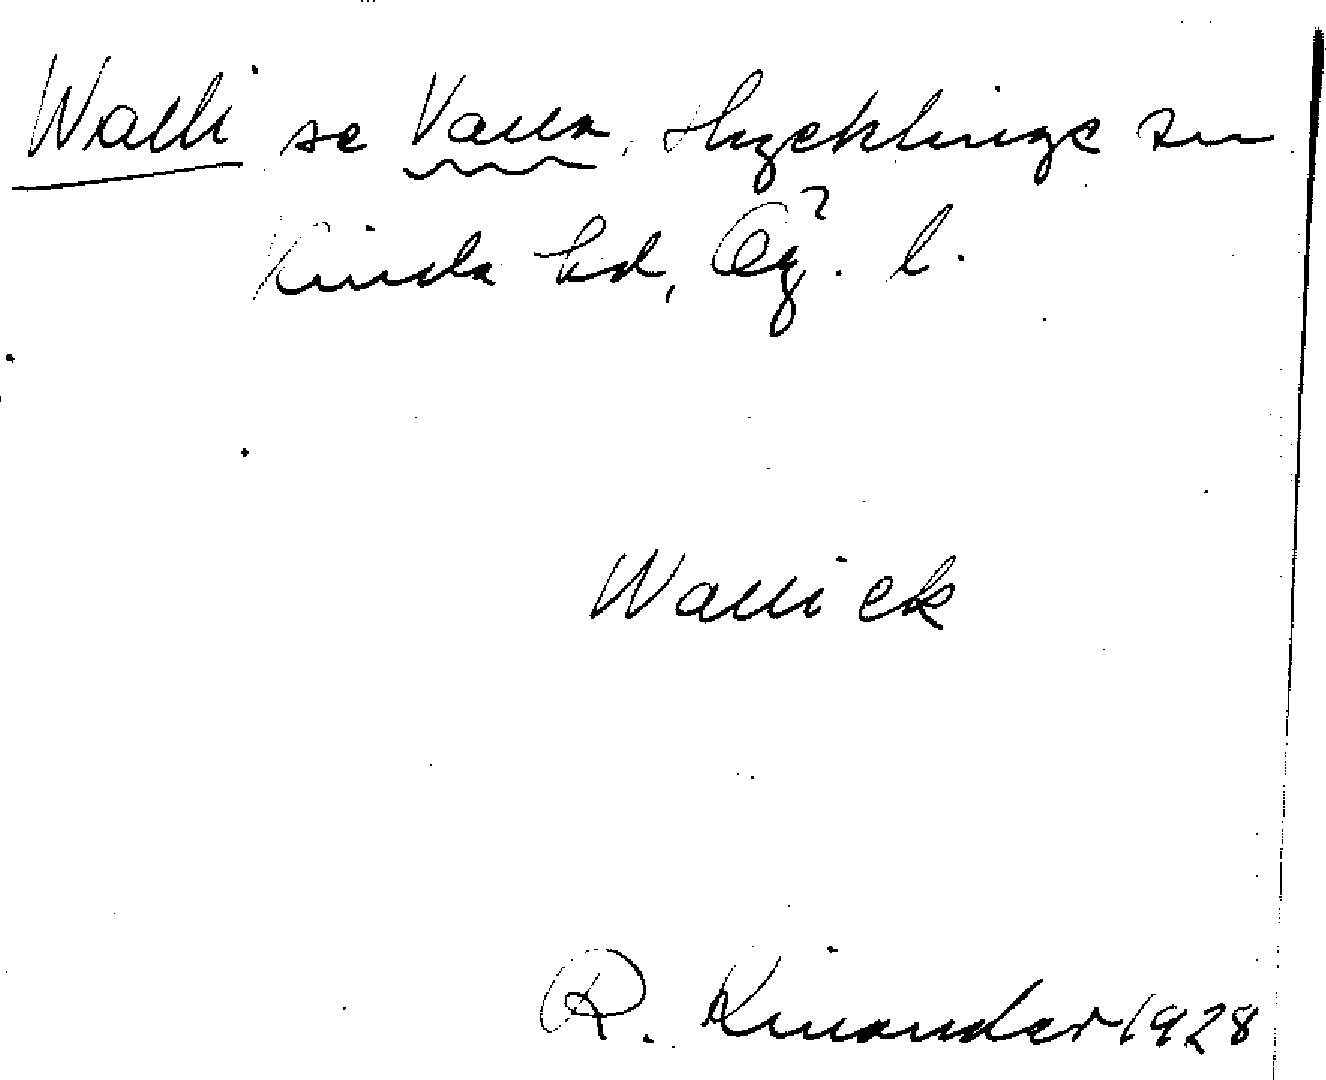 Walli se Valla, Hycklinge sn
Kinda hd, Ög. l.
Wallick
R. Kinander 1928